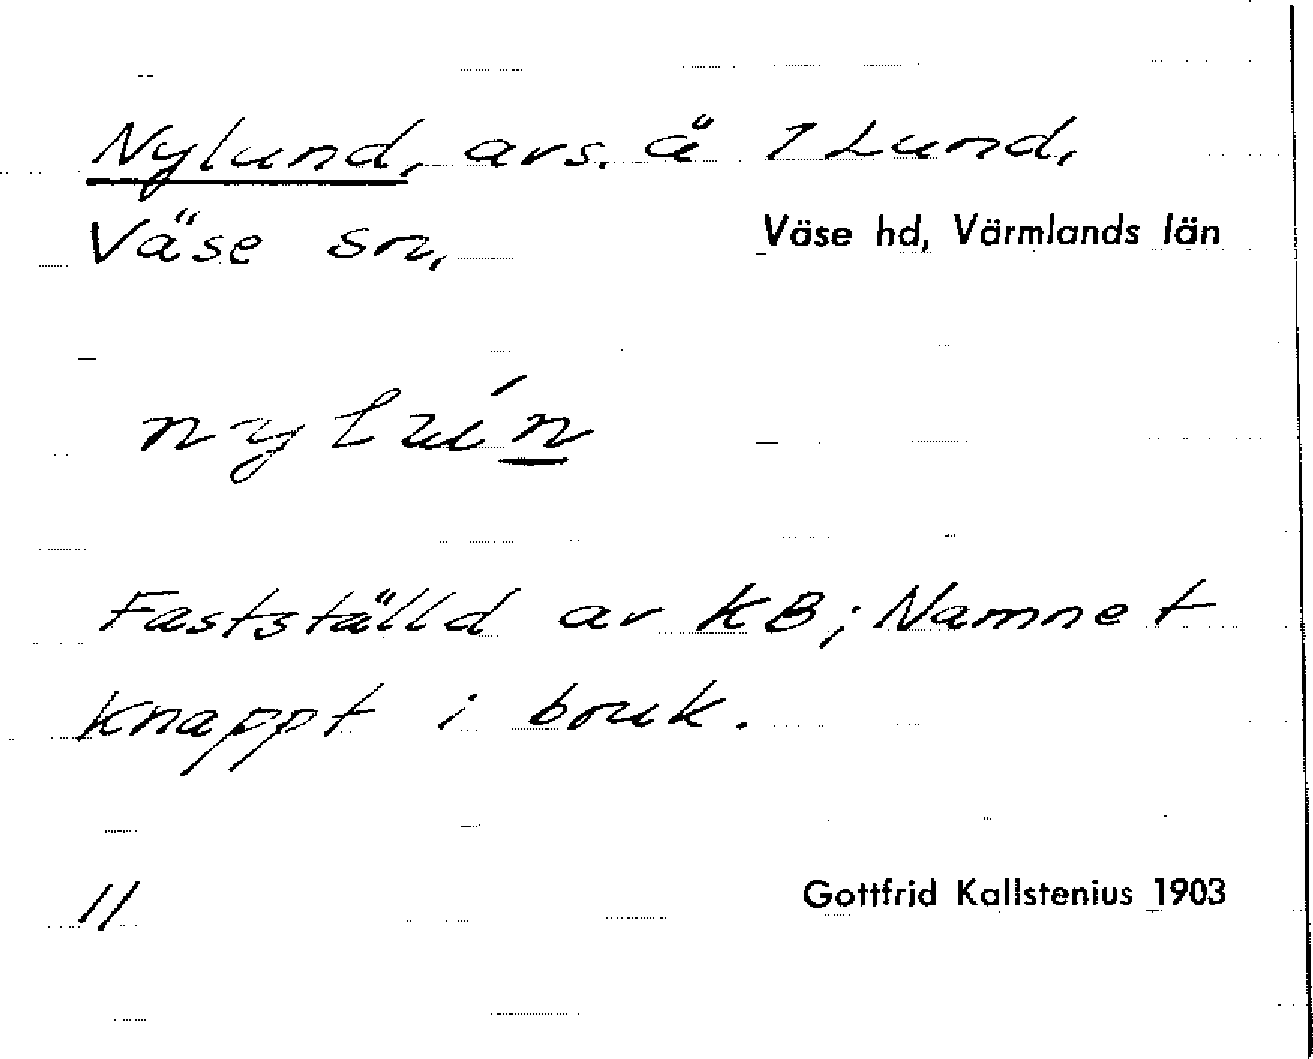 Nylund, avs. å 1 Lund,
Väse sn, Väse hd, Värmlands län
nylún
Fastställd av KB; Namnet
knappt i bruk.
11 Gottfrid Kallstenius 1903